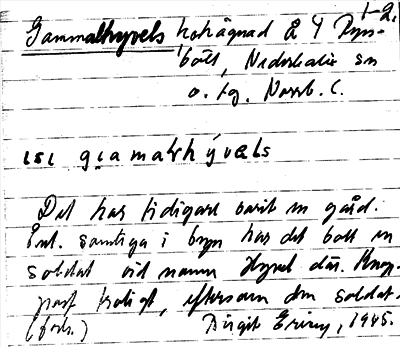 1-2.
Gammalhyvels kohägnad å 4 Byss-
bölt, Nederkalix sn
o. tg. Norrb. l.
ɩsɩ gɩamaɫhývəls
Det har tidigare varit en gård.
Enl. samtliga i byn har det bott en
soldat vid namn Hyvel där. Knap-
past troligt, eftersom den soldat-
(forts.) Birgit Ericy, 1945.